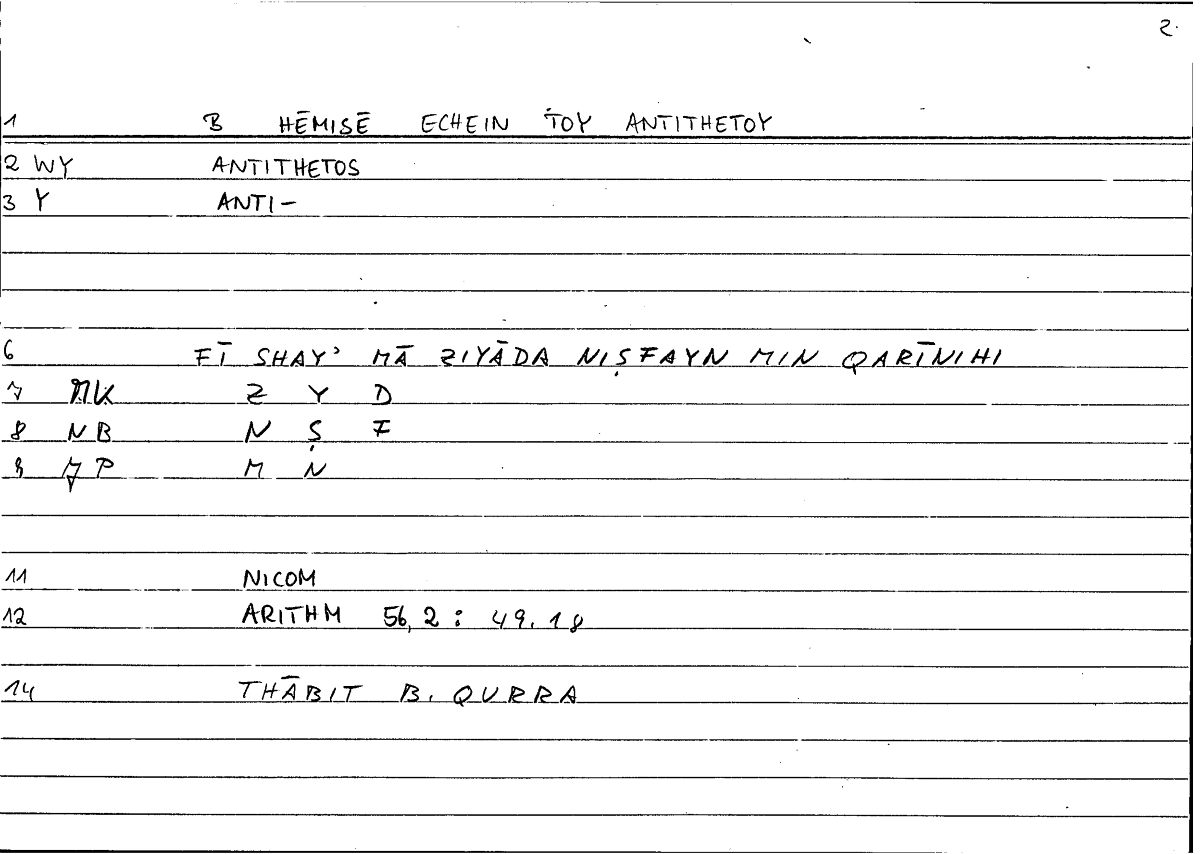 2.
1 B HĒMISĒ ECHEIN TOY ANTITHETOY
2 WY ANTITHETOS
3 Y ANTI-
6 FĪ SHAY' MĀ ZIYĀDA NIṢFAYN MIN QARĪNIHI
7 MK Z Y D
8 NB N Ṣ F
9 JP M N
11 NICOM
12 ARITHM 56,2 : 49.18
14 THĀBIT B. QURRA